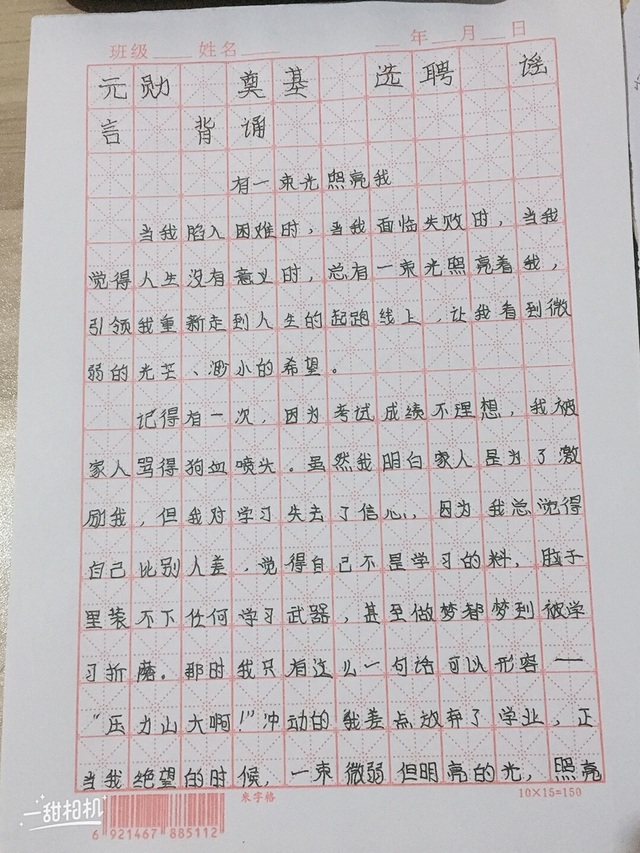 班级 姓名 年 月 日
元勋 奠基 选聘 谣
言 背诵
有一束光照亮我
当我陷入困难时，当我面临失败时，当我
觉得人生没有意义时，总有一束光照亮着我，
引领我重新走到人生的起跑线上，让我看到微
弱的光芒、渺小的希望。
记得有一次，因为考试成绩不理想，我被
家人骂得狗血喷头。虽然我明白家人是为了激
励我，但我对学习失去了信心，因为我总觉得
自己比别人差，觉得自己不是学习的料，脑子
里装不下任何学习武器，甚至做梦都梦到被学
习折磨。那时我只有这么一句话可以形容——
“压力山大啊！”冲动的我差点放弃了学业，正
当我绝望的时候，一束微弱但明亮的光，照亮
一甜相机
米字格
10×15=150
6 921467 885112